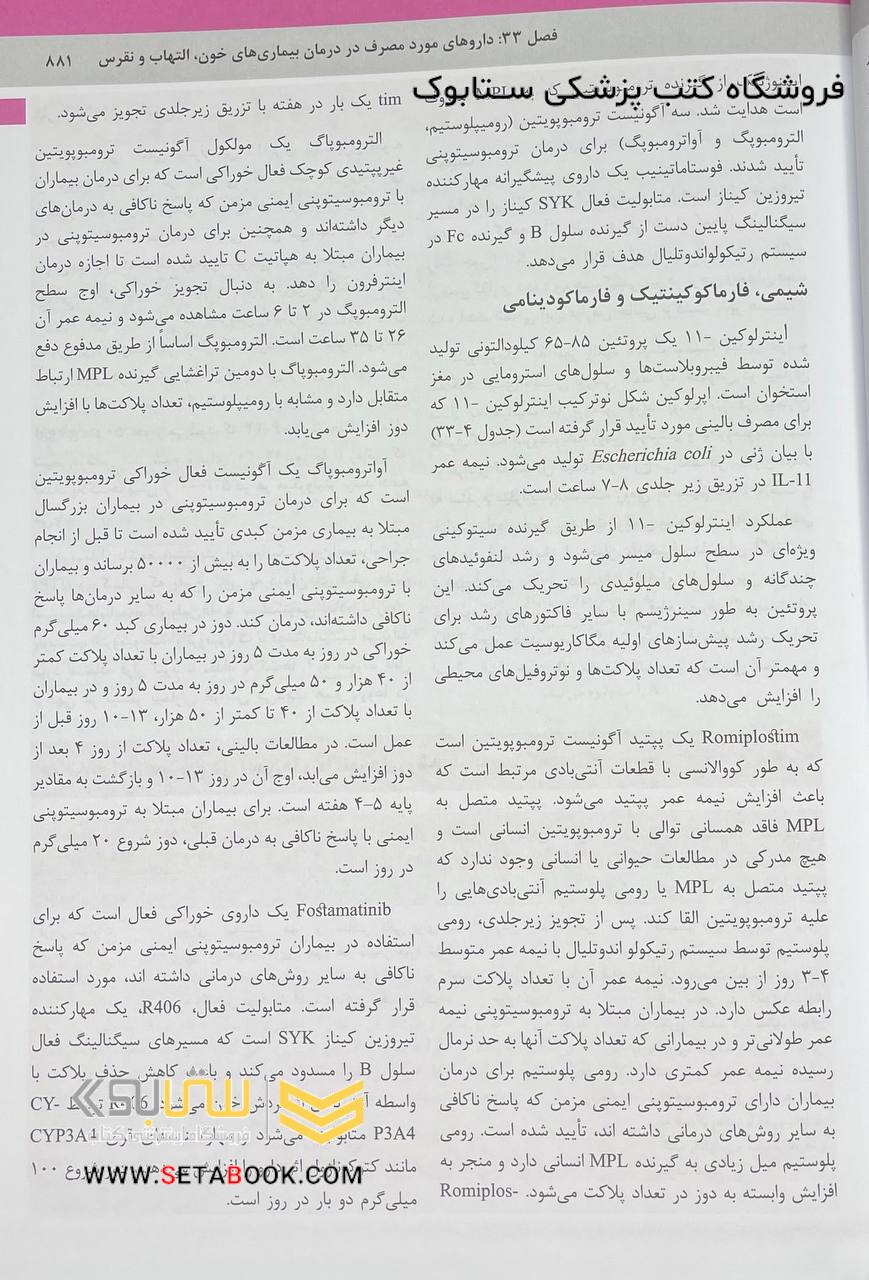 فصل ۳۳: داروهای مورد مصرف در درمان بیماری‌های خون، التهاب و نقرس ۸۸۱
فروشگاه کتب پزشکی ستابوک
است هدایت شد. سه آگونیست ترومبوپویتین (رومیپلوستیم،
الترومبوپگ و آواترومبوپگ) برای درمان ترومبوسیتوپنی
تأیید شدند. فوستاماتینیب یک داروی پیشگیرانه مهارکننده
تیروزین کیناز است. متابولیت فعال SYK کیناز را در مسیر
سیگنالینگ پایین دست از گیرنده سلول B و گیرنده Fc در
سیستم رتیکولواندوتلیال هدف قرار می‌دهد.
شیمی، فارماکوکینتیک و فارماکودینامی
اینترلوکین -۱۱ یک پروتئین ۸۵-۶۵ کیلودالتونی تولید
شده توسط فیبروبلاست‌ها و سلول‌های استرومایی در مغز
استخوان است. اپرلوکین شکل نوترکیب اینترلوکین -۱۱ که
برای مصرف بالینی مورد تأیید قرار گرفته است (جدول ۴-۳۳)
با بیان ژنی در Escherichia coli تولید می‌شود. نیمه عمر
IL-11 در تزریق زیر جلدی ۸-۷ ساعت است.
عملکرد اینترلوکین -۱۱ از طریق گیرنده سیتوکینی
ویژه‌ای در سطح سلول میسر می‌شود و رشد لنفوئیدهای
چندگانه و سلول‌های میلوئیدی را تحریک می‌کند. این
پروتئین به طور سینرژیسم با سایر فاکتورهای رشد برای
تحریک رشد پیش‌سازهای اولیه مگاکاریوسیت عمل می‌کند
و مهمتر آن است که تعداد پلاکت‌ها و نوتروفیل‌های محیطی
را افزایش می‌دهد.
Romiplostim یک پپتید آگونیست ترومبوپویتین است
که به طور کووالانسی با قطعات آنتی‌بادی مرتبط است که
باعث افزایش نیمه عمر پپتید می‌شود. پپتید متصل به
MPL فاقد همسانی توالی با ترومبوپویتین انسانی است و
هیچ مدرکی در مطالعات حیوانی یا انسانی وجود ندارد که
پپتید متصل به MPL یا رومی پلوستیم آنتی‌بادی‌هایی را
علیه ترومبوپویتین القا کند. پس از تجویز زیرجلدی، رومی
پلوستیم توسط سیستم رتیکولو اندوتلیال با نیمه عمر متوسط
۳-۴ روز از بین می‌رود. نیمه عمر آن با تعداد پلاکت سرم
رابطه عکس دارد. در بیماران مبتلا به ترومبوسیتوپنی نیمه
عمر طولانی‌تر و در بیمارانی که تعداد پلاکت آنها به حد نرمال
رسیده نیمه عمر کمتری دارد. رومی پلوستیم برای درمان
بیماران دارای ترومبوسیتوپنی ایمنی مزمن که پاسخ ناکافی
به سایر روش‌های درمانی داشته اند، تأیید شده است. رومی
پلوستیم میل زیادی به گیرنده MPL انسانی دارد و منجر به
افزایش وابسته به دوز در تعداد پلاکت می‌شود. Romiplos-
tim یک بار در هفته با تزریق زیرجلدی تجویز می‌شود.
الترومبوپاگ یک مولکول آگونیست ترومبوپویتین
غیرپپتیدی کوچک فعال خوراکی است که برای درمان بیماران
با ترومبوسیتوپنی ایمنی مزمن که پاسخ ناکافی به درمان‌های
دیگر داشته‌اند و همچنین برای درمان ترومبوسیتوپنی در
بیماران مبتلا به هپاتیت C تایید شده است تا اجازه درمان
اینترفرون را دهد. به دنبال تجویز خوراکی، اوج سطح
الترومبوپگ در ۲ تا ۶ ساعت مشاهده می‌شود و نیمه عمر آن
۲۶ تا ۳۵ ساعت است. الترومبوپگ اساساً از طریق مدفوع دفع
می‌شود. الترومبوپاگ با دومین تراغشایی گیرنده MPL ارتباط
متقابل دارد و مشابه با رومیپلوستیم، تعداد پلاکت‌ها با افزایش
دوز افزایش می‌یابد.
آواترومبوپاگ یک آگونیست فعال خوراکی ترومبوپویتین
است که برای درمان ترومبوسیتوپنی در بیماران بزرگسال
مبتلا به بیماری مزمن کبدی تأیید شده است تا قبل از انجام
جراحی، تعداد پلاکت‌ها را به بیش از ۵۰۰۰۰ برساند و بیماران
با ترومبوسیتوپنی ایمنی مزمن را که به سایر درمان‌ها پاسخ
ناکافی داشته‌اند، درمان کند. دوز در بیماری کبد ۶۰ میلی‌گرم
خوراکی در روز به مدت ۵ روز در بیماران با تعداد پلاکت کمتر
از ۴۰ هزار و ۵۰ میلی‌گرم در روز به مدت ۵ روز و در بیماران
با تعداد پلاکت از ۴۰ تا کمتر از ۵۰ هزار، ۱۳-۱۰ روز قبل از
عمل است. در مطالعات بالینی، تعداد پلاکت از روز ۴ بعد از
دوز افزایش می‌ابد، اوج آن در روز ۱۳-۱۰ و بازگشت به مقادیر
پایه ۵-۴ هفته است. برای بیماران مبتلا به ترومبوسیتوپنی
ایمنی با پاسخ ناکافی به درمان قبلی، دوز شروع ۲۰ میلی‌گرم
در روز است.
Fostamatinib یک داروی خوراکی فعال است که برای
استفاده در بیماران ترومبوسیتوپنی ایمنی مزمن که پاسخ
ناکافی به سایر روش‌های درمانی داشته اند، مورد استفاده
قرار گرفته است. متابولیت فعال، R406، یک مهارکننده
تیروزین کیناز SYK است که مسیرهای سیگنالینگ فعال
سلول B را مسدود می‌کند و باعث کاهش حذف پلاکت با
واسطه CY-
P3A4 CYP3A4
مانند
میلی‌گرم دو بار در روز است.
ستابوک
WWW.SETABOOK.COM
شروع ۱۰۰